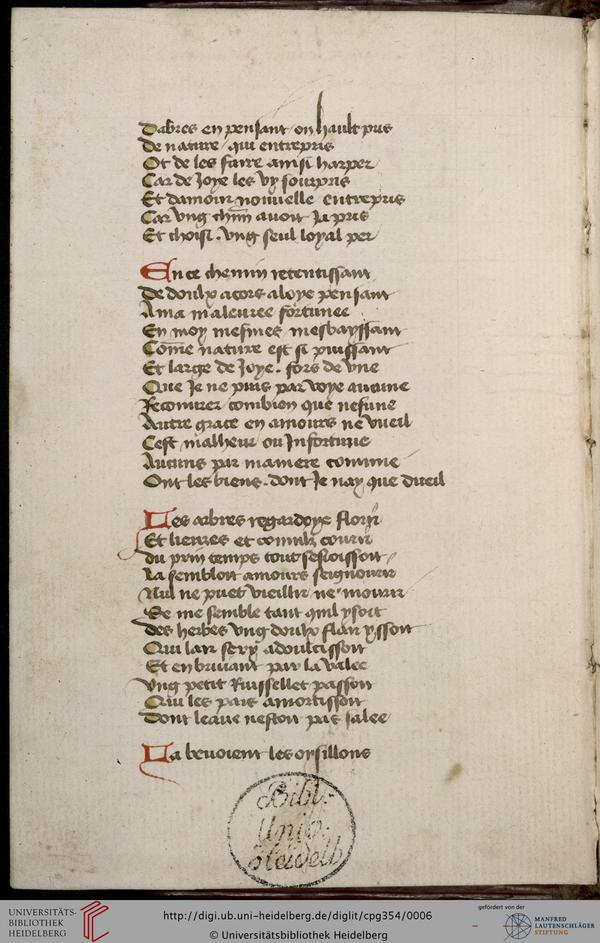 Dabres en pensant on hault pris
De nature qui entrepris
Ot de les faire ainsi harper
Car de Joye les vy sourpris
Et damour nouuelle entrepris
Car vng chm̄ auoit Ja pris
Et choisi . vng seul loyal per
En ce chemin retentissant
De doulx acors aloye pensant
A ma maleuree fortunee
En moy mesmes mesbayssant
Com̄e nature est si puissant
Et large de Joye . fors de vne
Que Je ne puis par voye aucune
Recouurer combien que nesune
Autre grace en amours ne vueil
Cest malheur ou Infortune
Aucuns par maniere commune
Ont les biens . dont Je nay que dueil
Les arbres regardoye florir
Et lieures et connilz courir
du prin temps tout sesioissoit
La sembloit amours seignourir
Nul ne puet vieillir ne mourir
Se me semble tant quil y soit
des herbes vng doulx flair yssoit
Qui lair sery adoulcissoit
Et en bruiant par la valee
vng petit Ruissellet passoit
Qui les pais amortissoit
Dont leaue nestoit pas salee
La beuoient les oysillons
Bibl.
Univ.
Heidelb
UNIVERSITÄTS-
BIBLIOTHEK
HEIDELBERG
http://digi.ub.uni-heidelberg.de/diglit/cpg354/0006
© Universitätsbibliothek Heidelberg
gefördert von der
MANFRED
LAUTENSCHLÄGER
STIFTUNG